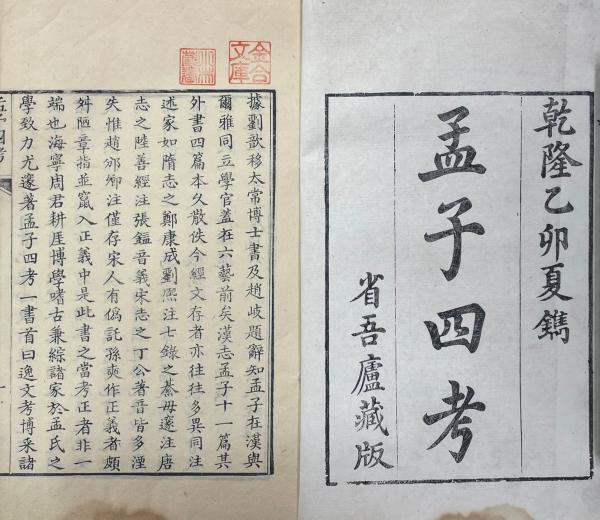 乾隆乙卯夏鐫
孟子四考
省吾廬藏版
金合
文庫
據劉歆移太常博士書及趙岐題辭知孟子在漢與
爾雅同立學官蓋在六藝前矣漢志孟子十一篇其
外書四篇本久散佚今經文存者亦往往多異同注
述家如隋志之鄭康成劉熙注七錄之綦毋邃注唐
志之陸善經注張鎰音義宋志之丁公著音皆多湮
失惟趙邠卿注僅存宋人有偽託孫奭作正義者頗
舛陋章指並竄入正義中是此書之當考正者非一
端也海寧周君耕厓博學嗜古兼綜諸家於孟氏之
學致力尤邃著孟子四考一書首曰逸文考博采諸
孟子四考
一